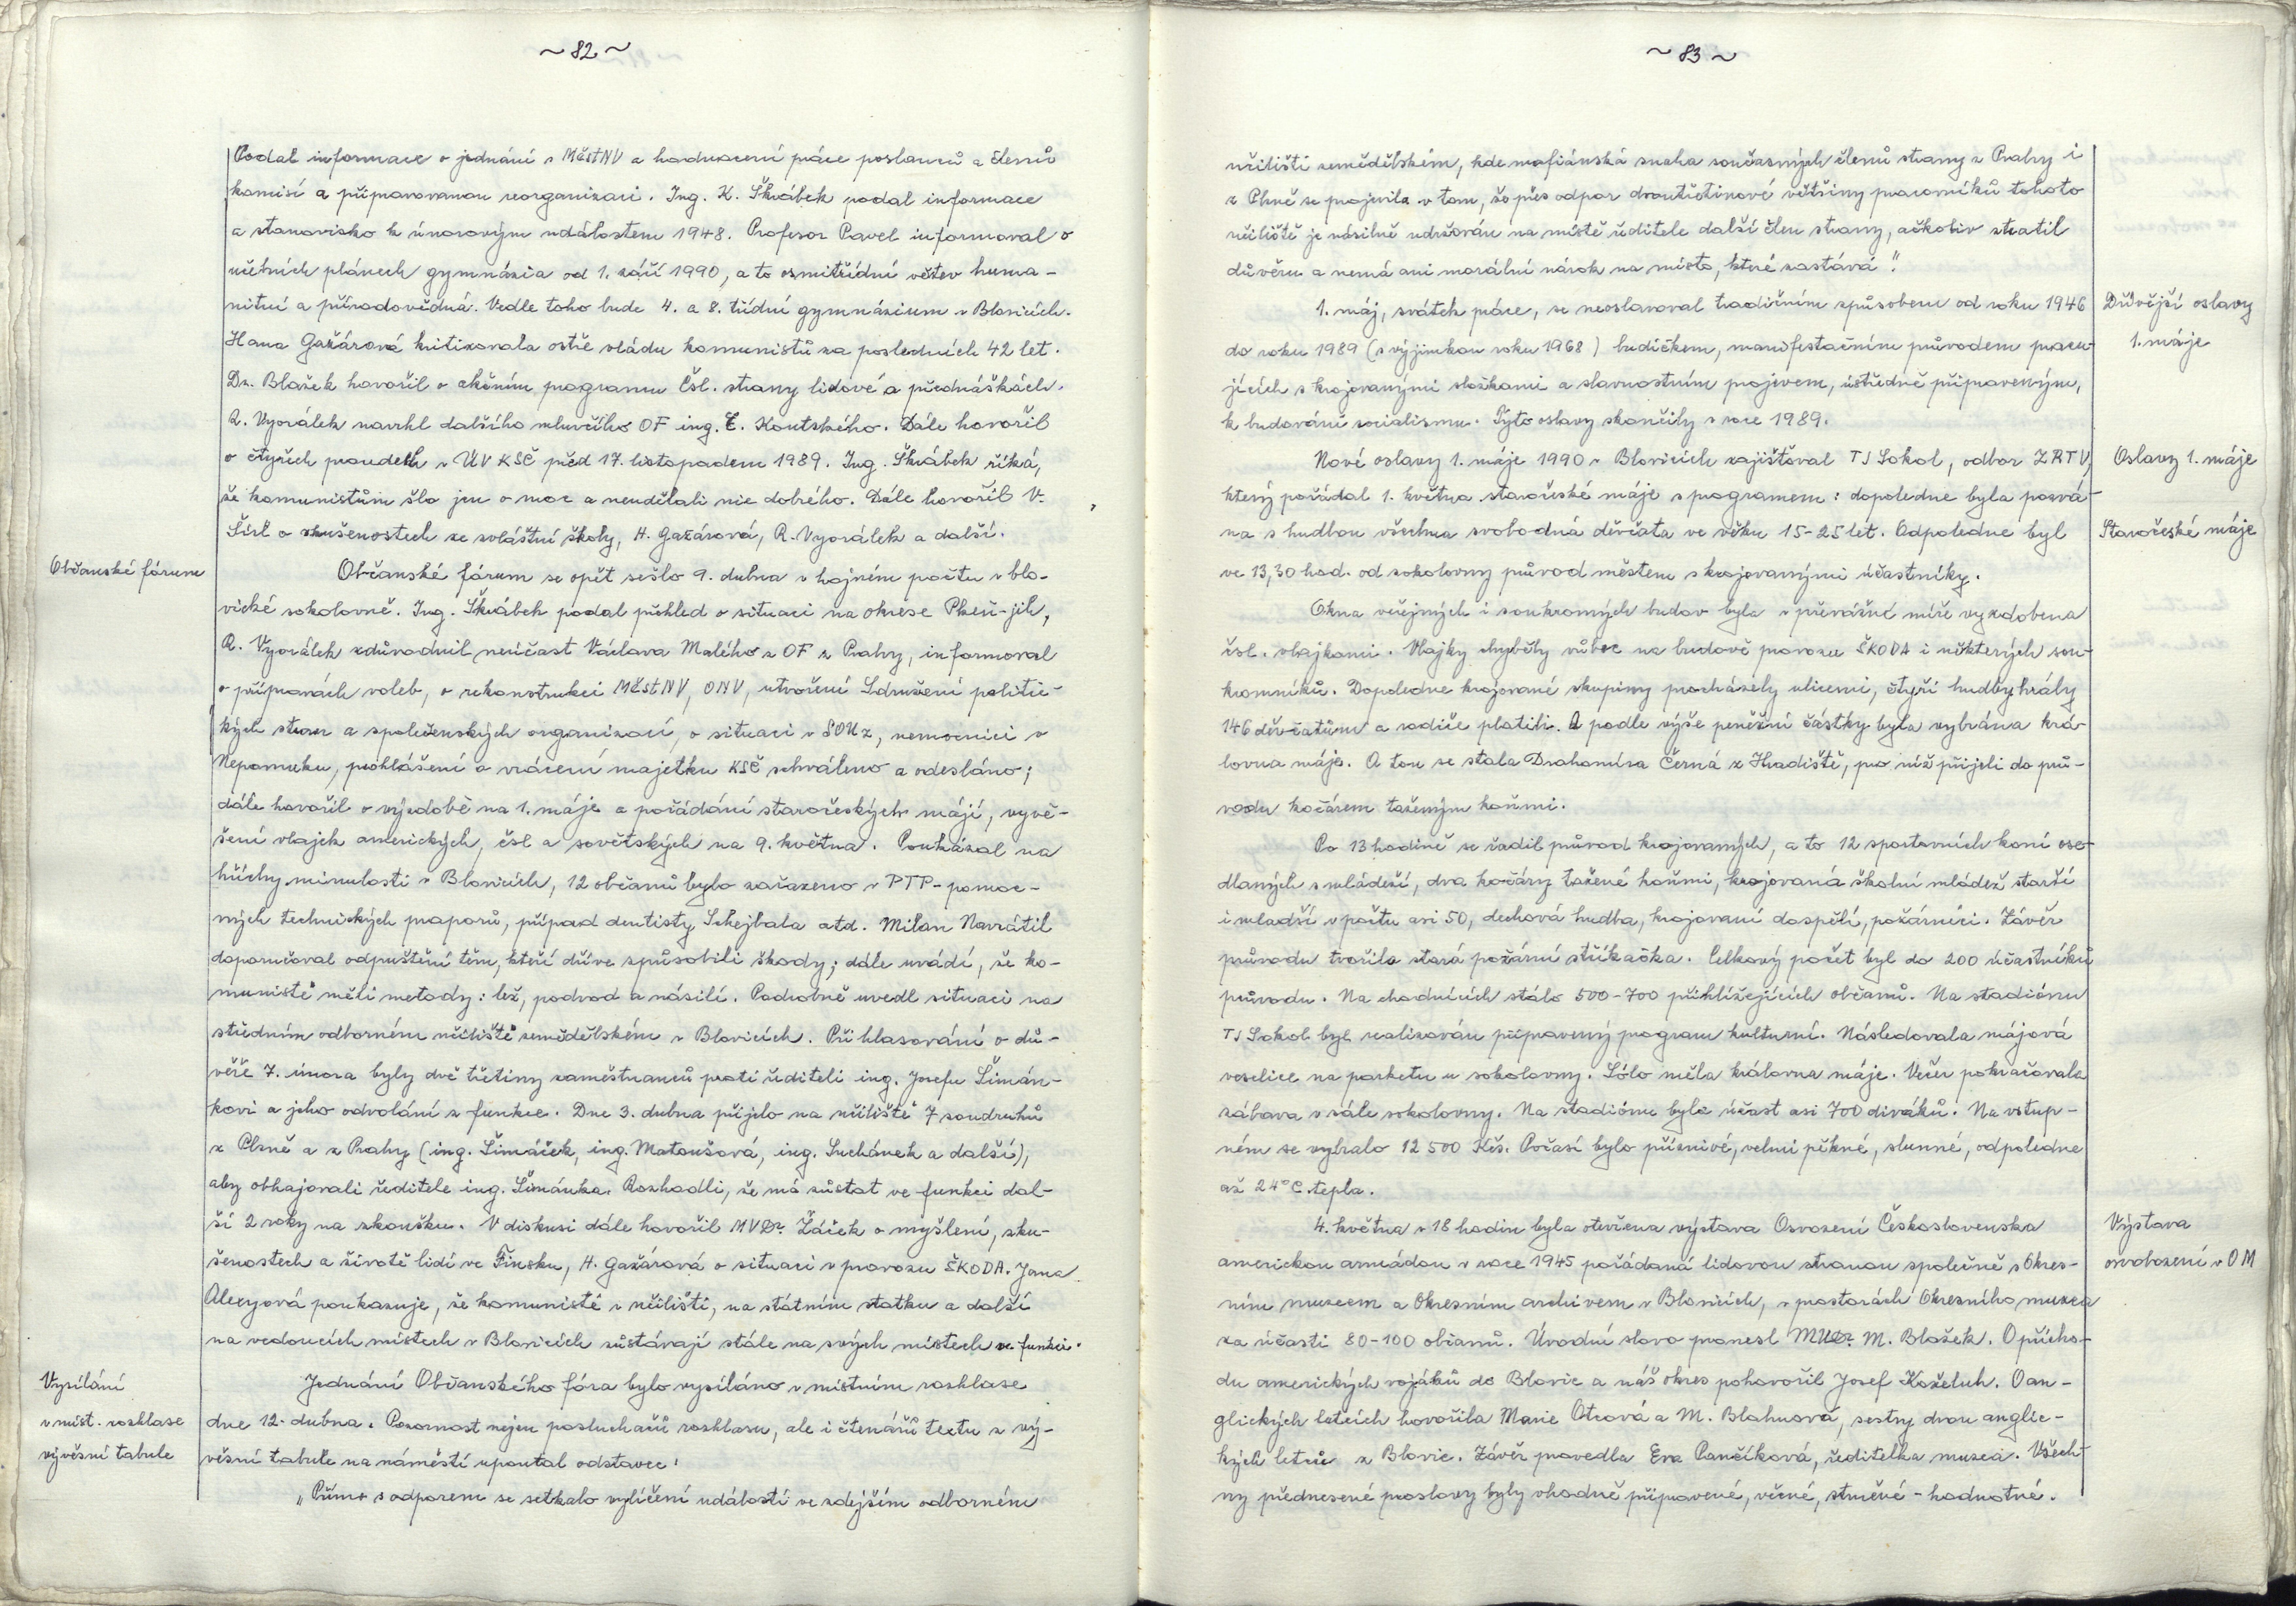 ~ 82 ~
Podal informace o jednání v MěstNV a hodnocení práce poslanců a členů
komisí a připravovanou reorganizaci. Ing. K. Škrábek podal informace
a stanovisko k únorovým událostem 1948. Profesor Pavel informoval o
učebních plánech gymnázia od 1. září 1990, a to osmitřídní větev huma-
nitní a přírodovědná. Vedle toho bude 4. a 8. třídní gymnázium v Blovicích.
Hana Gažárová kritizovala ostře vládu komunistů za posledních 42 let.
Dr. Blažek hovořil o akčním programu Čsl. strany lidové a přednáškách.
R. Vyorálek navrhl dalšího mluvčího OF ing. E. Koutského. Dále hovořil
o čtyřech proudech v ÚV KSČ před 17. listopadem 1989. Ing. Škrábek říká,
že komunistům šlo jen o moc a neudělali nic dobrého. Dále hovořil V.
Šísl o zkušenostech ze zvláštní školy, H. Gažárová, R. Vyorálek a další.
Občanské fórum
Občanské fórum se opět sešlo 9. dubna v hojném počtu v blo-
vické sokolovně. Ing. Škrábek podal přehled o situaci na okrese Plzeň-jih,
R. Vyorálek zdůvodnil neúčast Václava Malého z OF z Prahy, informoval
o přípravách voleb, o rekonstrukci MěstNV, ONV, utvoření Sdružení politic-
kých stran a společenských organizací, o situaci v SOUz, nemocnici v
Nepomuku, prohlášení o vrácení majetku KSČ schváleno a odesláno;
dále hovořil o výzdobě na 1. máje a pořádání staročeských májí, vyvě-
šení vlajek amerických, čsl a sovětských na 9. května. Poukázal na
hříchy minulosti v Blovicích, 12 občanů bylo zařazeno v PTP - pomoc-
ných technických praporů, případ dentisty Schejbala atd. Milan Navrátil
doporučoval odpuštění těm, kteří dříve způsobili škody; dále uvádí, že ko-
munisté měli metody: lež, podvod a násilí. Podrobně uvedl situaci na
středním odborném učiliště zemědělském v Blovicích. Při hlasování o dů-
věře 7. února byly dvě třetiny zaměstnanců proti řediteli ing. Josefu Šimán-
kovi a jeho odvolání z funkce. Dne 3. dubna přijelo na učiliště 7 soudruhů
z Plzně a z Prahy (ing. Šimáček, ing. Matoušová, ing. Suchánek a další),
aby obhajovali ředitele ing. Šimánka. Rozhodli, že má zůstat ve funkci dal-
ší 2 roky na zkoušku. V diskusi dále hovořil MVDr. Žáček o myšlení, zku-
šenostech a životě lidí ve Finsku, H. Gažárová o situaci v provozu ŠKODA. Jana
Alexyová poukazuje, že komunisté v učilišti, na státním statku a další
na vedoucích místech v Blovicích zůstávají stále na svých místech ve funkci.
Vysílání
v míst. rozhlase
vývěsní tabule
Jednání Občanského fóra bylo vysíláno v místním rozhlase
dne 12. dubna. Pozornost nejen posluchačů rozhlasu, ale i čtenářů textu z vý-
věsní tabule na náměstí upoutal odstavec:
„Přímo s odporem se setkalo vylíčení událostí ve zdejším odborném
~ 83 ~
učilišti zemědělském, kde mafiánská snaha současných členů strany z Prahy i
z Plzně se projevila v tom, že přes odpor dvoutřetinové většiny pracovníků tohoto
učiliště je násilně udržován na místě ředitele další člen strany, ačkoliv ztratil
důvěru a nemá ani morální nárok na místo, které zastává".
Dřívější oslavy
1. máje
1. máj, svátek práce, se neoslavoval tradičním způsobem od roku 1946
do roku 1989 (s výjimkou roku 1968) budíčkem, manifestačním průvodem pracu-
jících s krojovanými složkami a slavnostním projevem, ústředně připraveným,
k budování socialismu. Tyto oslavy skončily v roce 1989.
Oslavy 1. máje
Staročeské máje
Nové oslavy 1. máje 1990 v Blovicích zajišťoval TJ Sokol, odbor ZRTV,
který pořádal 1. května staročeské máje s programem: dopoledne byla pozvá-
na s hudbou všechna svobodná děvčata ve věku 15-25 let. Odpoledne byl
ve 13,30 hod. od sokolovny průvod městem s krojovanými účastníky.
Okna veřejných i soukromých budov byla v převážné míře vyzdobena
čsl. vlajkami. Vlajky chyběly vůbec na budově provozu ŠKODA i některých sou-
kromníků. Dopoledne krojované skupiny procházely ulicemi, čtyři hudby hrály
146 děvčatům a rodiče platili. A podle výše peněžní částky byla vybrána krá-
lovna máje. A tou se stala Drahomíra Černá z Hradiště, pro níž přijeli do prů-
vodu kočárem taženým koňmi.
Po 13 hodině se řadil průvod krojovaných, a to 12 sportovních koní ose-
dlaných s mládeží, dva kočáry tažené koňmi, krojovaná školní mládež starší
i mladší v počtu asi 50, dechová hudba, krojovaní dospělí, požárníci. Závěr
průvodu tvořila stará požární stříkačka. Celkový počet byl do 200 účastníků
průvodu. Na chodnících stálo 500-700 přihlížejících občanů. Na stadiónu
TJ Sokol byl realizován připravený program kulturní. Následovala májová
veselice na parketu u sokolovny. Sólo měla královna máje. Večer pokračovala
zábava v sále sokolovny. Na stadiónu byla účast asi 700 diváků. Na vstup-
ném se vybralo 12 500 Kčs. Počasí bylo příznivé, velmi pěkné, slunné, odpoledne
až 24°C tepla.
Výstava
osvobození v OM
4. května v 18 hodin byla otevřena výstava Osvození Československa
americkou armádou v roce 1945 pořádaná lidovou stranou společně s Okres-
ním muzeem a Okresním archivem v Blovicích, v prostorách Okresního muzea
za účasti 80-100 občanů. Úvodní slovo pronesl MUDr. M. Blažek. O přícho-
du amerických vojáků do Blovic a náš okres pohovořil Josef Koželuh. O an-
glických letcích hovořila Marie Otcová a M. Blahnová, sestry dvou anglic-
kých letců z Blovic. Závěr provedla Eva Pančíková, ředitelka muzea. Všech-
ny přednesené proslovy byly vhodně připravené, věcné, stručné - hodnotné.